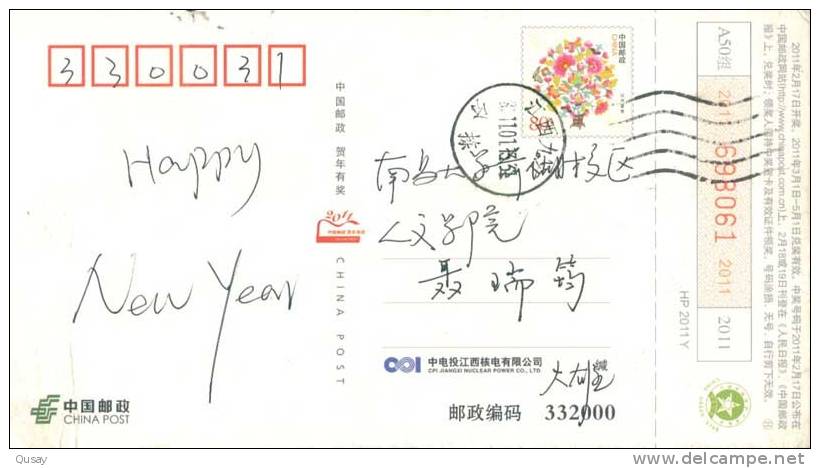 330031
中国邮政
CHINA
Happy
New Year
中国邮政 贺年有奖
2011
CHINA POST
南昌大学前湖校区
人文学院
聂瑞筠
中电投江西核电有限公司
CPI JIANGXI NUCLEAR POWER CO., LTD.
缄
邮政编码 332000
中国邮政
CHINA POST
A50组
2011 698061 2011
2011
HP 2011 Y
2011年2月17日开奖。2011年3月1日—5月1日兑奖有效。中奖号码于2011年2月17日公布在
中国邮政网站(http://www.chinapost.com.cn)上，2月18或19日刊登在《人民日报》、《中国邮政
报》上。兑奖时，领奖人需持中奖贺卡及有效证件领奖，号码涂损，无号，自行剪下无效。
Qusay
www.delcampe.net